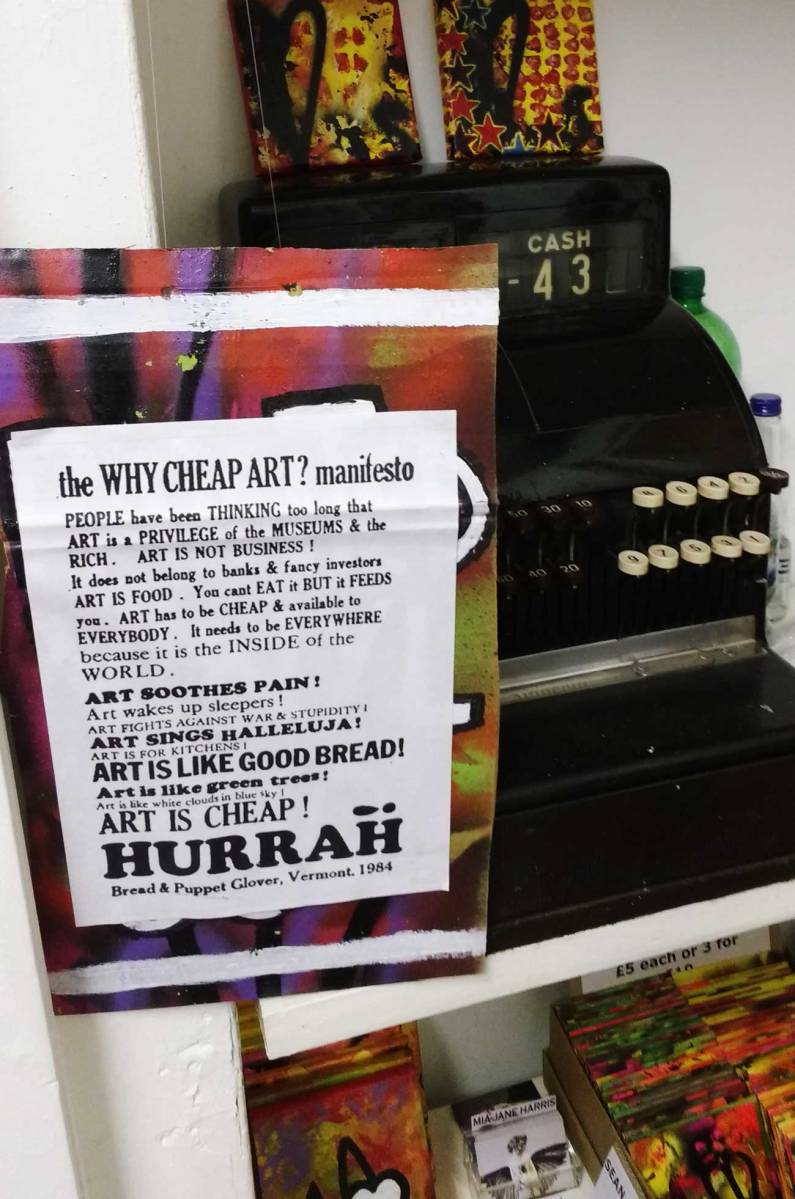 CASH
-43
the WHY CHEAP ART? manifesto
PEOPLE have been THINKING too long that
ART is a PRIVILEGE of the MUSEUMS & the
RICH. ART IS NOT BUSINESS !
It does not belong to banks & fancy investors
ART IS FOOD. You cant EAT it BUT it FEEDS
you. ART has to be CHEAP & available to
EVERYBODY. It needs to be EVERYWHERE
because it is the INSIDE of the
WORLD.
ART SOOTHES PAIN!
Art wakes up sleepers!
ART FIGHTS AGAINST WAR & STUPIDITY!
ART SINGS HALLELUJA!
ART IS FOR KITCHENS!
ART IS LIKE GOOD BREAD!
Art is like green trees!
Art is like white clouds in blue sky!
ART IS CHEAP!
HURRAḦ
Bread & Puppet Glover, Vermont. 1984
50 30 10
40 20
8 6 4 2
9 7 5 3 1
£5 each or 3 for
£10
MIA-JANE HARRIS
SEAN